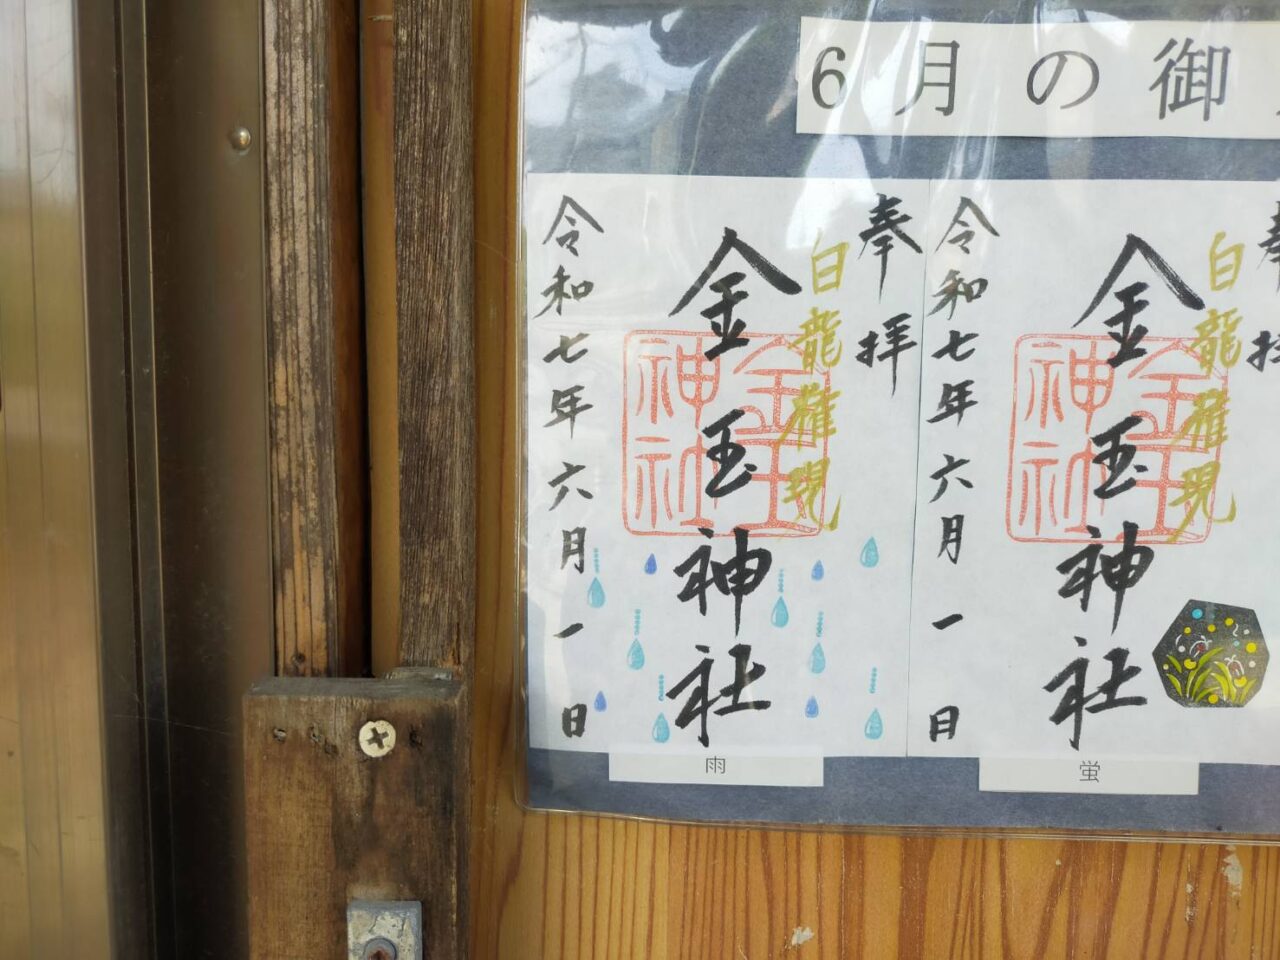 6月の御
奉拝
白龍権現
金玉神社
金玉神社
令和七年六月一日
雨
奉拝
白龍権現
金玉神社
金玉神社
令和七年六月一日
蛍